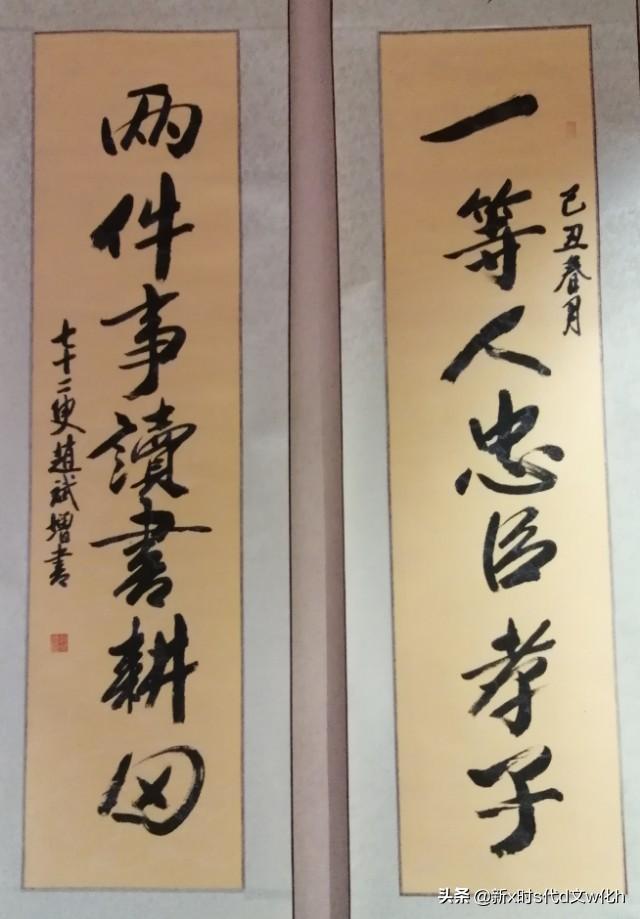 己丑春月
一等人忠臣孝子
两件事讀書耕田
七十二叟趙斌增書
头条 @新x时s代d文w化h